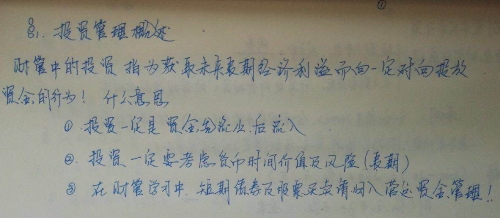 ①
§1. 投资管理概述
财管中的投资指为获取未来长期经济利益而向一定对向投放
资金的行为！什么意思
① 投资一定是资金先流出后流入
②. 投资一定要考虑货币时间价值及风险(长期)
③ 在财管学习中,短期债券及股票买卖归入营运资金管理!!